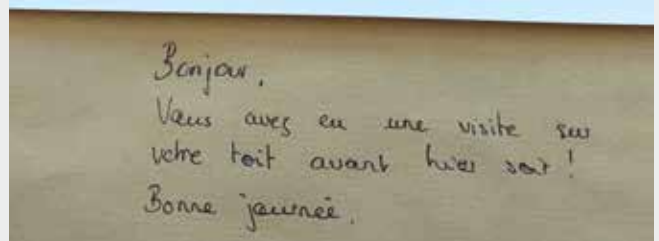 Bonjour,
Vous avez eu une visite sur
votre toit avant hier soir !
Bonne journée.